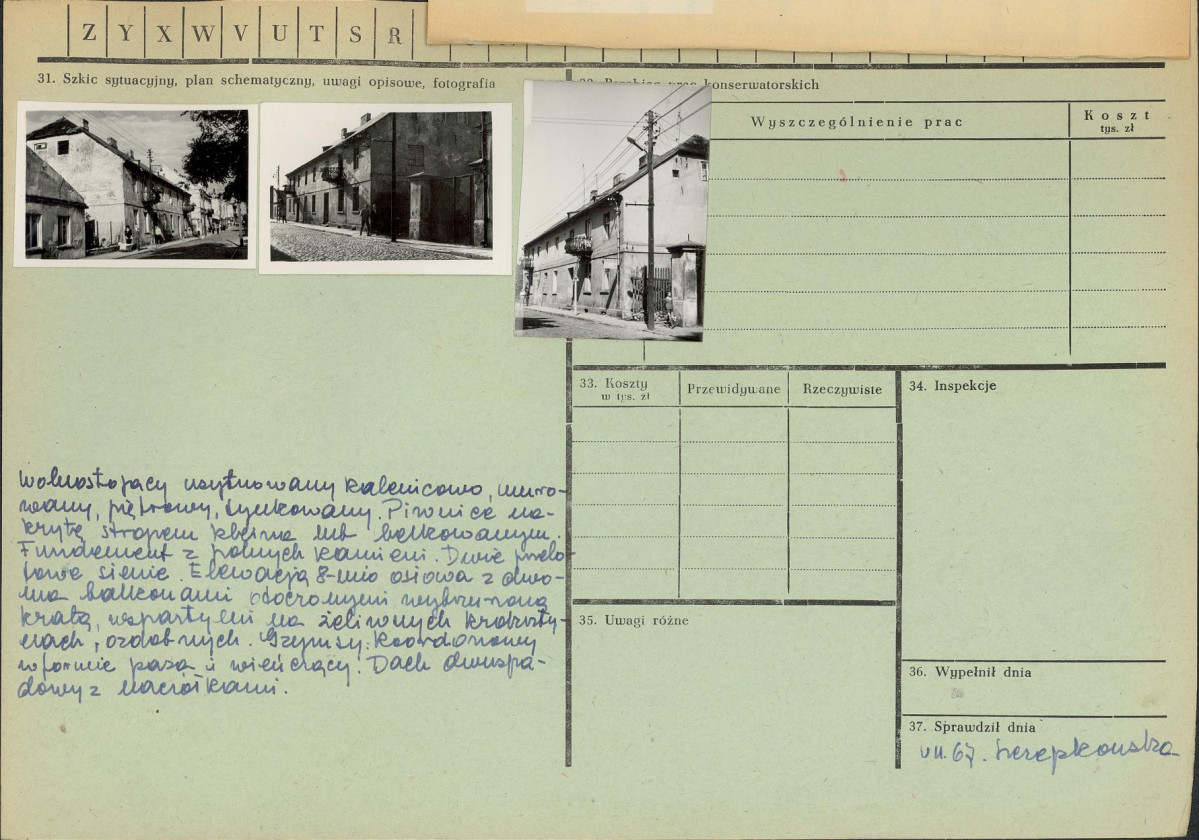 Z Y X W V U T S R
31. Szkic sytuacyjny, plan schematyczny, uwagi opisowe, fotografia
konserwatorskich
Wyszczególnienie prac
Koszt
tys. zł
Wolnostojący usytuowany kalenicowo, muro-
wany, piętrowy, tynkowany. Piwnice na-
kryte stropem kleina lub belkowanym.
Fundament z polnych kamieni. Dwie przelo-
towe sienie. Elewacja 8-mio osiowa z dwo-
ma balkonami otoczonymi wybrzuszoną
kratą, wspartymi na żeliwnych krokszty-
nach, ozdobnych. Gzymsy: koordonowy
w formie pasa i wieńczący. Dach dwuspa-
dowy z naciółkami.
33. Koszty
w tys. zł
Przewidywane
Rzeczywiste
34. Inspekcje
35. Uwagi różne
36. Wypełnił dnia
37. Sprawdził dnia
VII. 67.